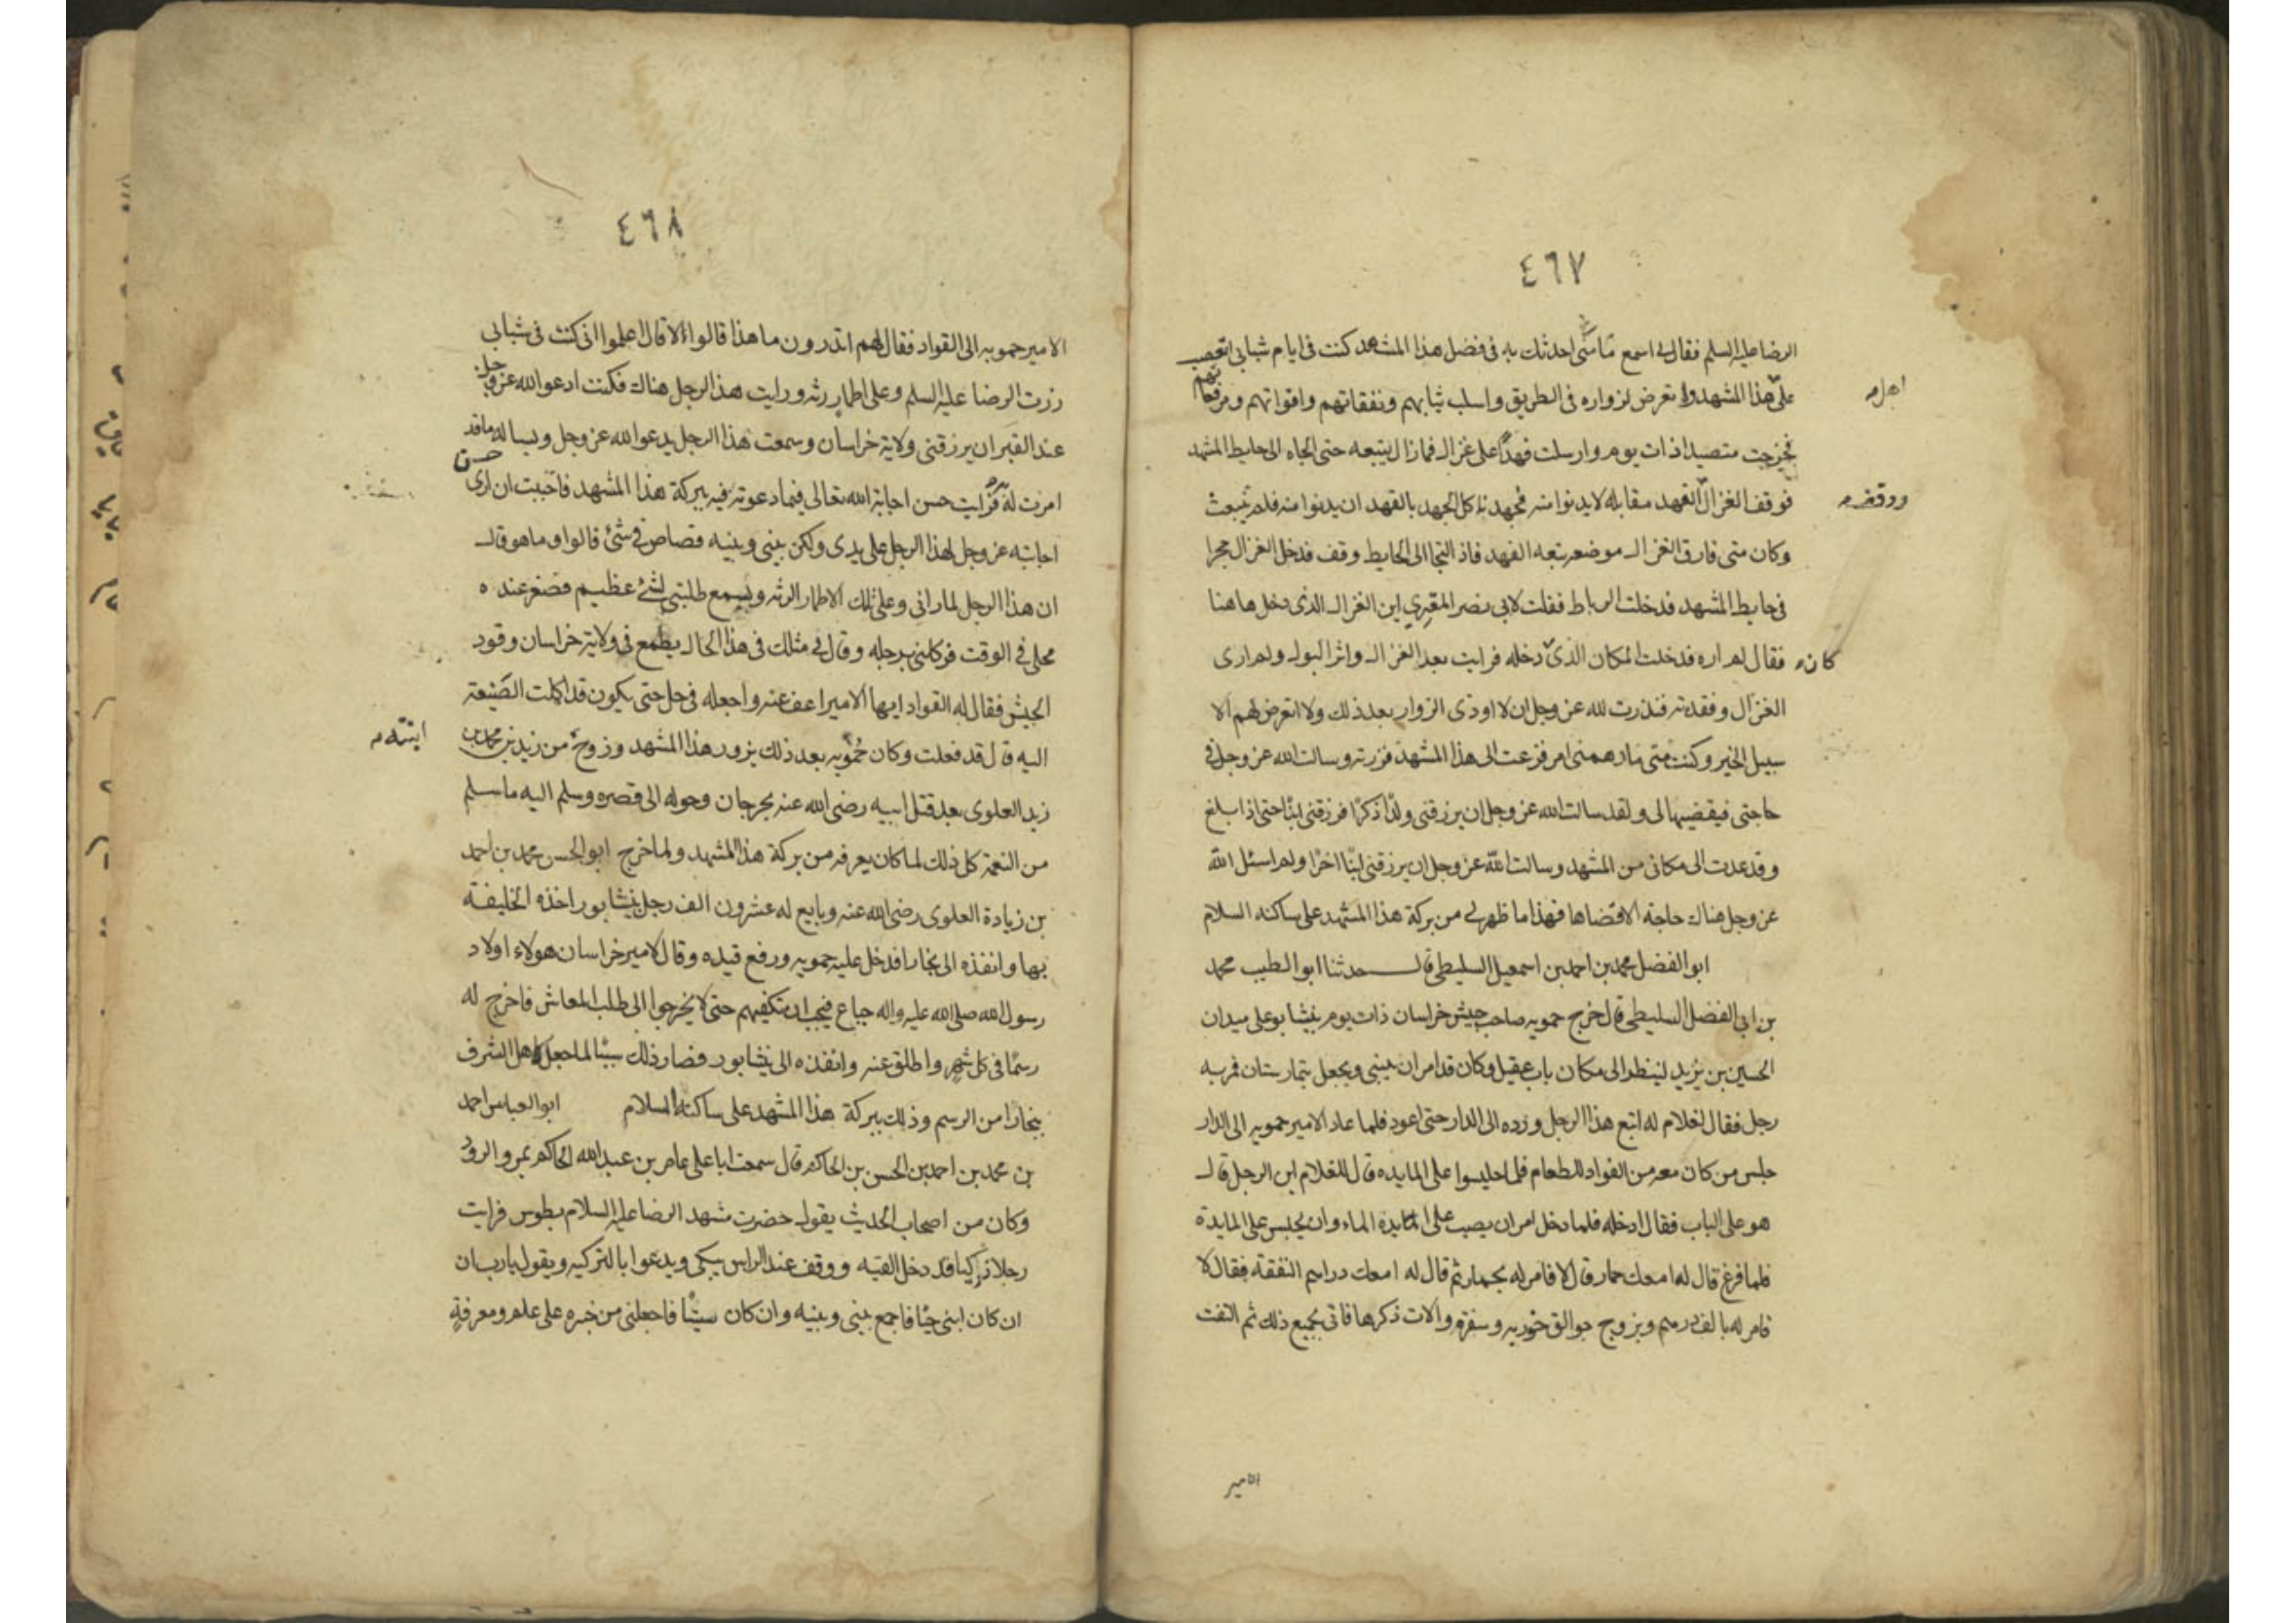 ٤٦٧
الرضا عليه السلم فقال لي اسمع مني احدثك به في فضل هذا المشهد كنت في ايام شبابي اتعصب
على هذا المشهد واتعرض لزواره في الطريق واسلب ثيابهم ونفقاتهم واقواتهم ومرقعاتهم
اهل
فخرجت متصيدا ذات يوم وارسلت فهدا على غزال فمازال يتبعه حتى الجاه الى حايط المشهد
فوقف الغزال الفهد مقابله لا يدنوا منه فجهدنا كل الجهد بالفهد ان يدنوا منه فلم ينبعث
ووقف
وكان متى فارق الغزال موضعه تبعه الفهد فاذا التجا الى الحايط وقف فدخل الغزال حجرا
في حايط المشهد فدخلت الرباط فقلت لابي نصر المقري اين الغزال الذي دخل هاهنا
كان فقال لم اره فدخلت المكان الذي دخله فرايت بعر الغزال واثر البول ولم ارى
الغزال وفقدته فنذرت لله عز وجل ان لا اوذى الزوار بعد ذلك ولا اتعرض لهم الا
سبيل الخير وكنت متى ما دهمنى امر فزعت الى هذا المشهد فزرته وسالت الله عز وجل في
حاجتي فيقضيها لى ولقد سالت الله عز وجل ان يرزقني ولدا ذكرا فرزقني ابنا حتى اذا بلغ
وقد عدت الى مكاني من المشهد وسالت الله عز وجل ان يرزقني ابنا اخرا ولم اسئل الله
عز وجل هناك حاجة الا قضاها فهذا ما ظهر لي من بركة هذا المشهد على ساكنه السلام
ابو الفضل محمد بن احمد بن اسمعيل السليطي قال حدثنا ابو الطيب محمد
بن ابي الفضل السليطي قال خرج حمويه صاحب جيش خراسان ذات يوم بنيشابو على ميدان
الحسين بن يزيد لينظر الى مكان باب عقيل وكان قد امر ان يبنى ويجعل بيمارستان فمر به
رجل فقال لغلام له اتبع هذا الرجل ورده الى الدار حتى اعود فلما عاد الامير حمويه الى الدار
جلس من كان معه من القواد للطعام فلما جلسوا على المايده قال للغلام اين الرجل قال
هو على الباب فقال ادخله فلما دخل امر ان يصب على المايدة الماء وان يجلس على المايدة
فلما فرغ قال له امعك حمار قال لا فامر له بحمار ثم قال له امعك دراهم النفقة فقال لا
فامر له بالف درهم وبزوج جوالق خوزيه وسفرة وآلات ذكرها فاتى بجميع ذلك ثم التفت
الامير
٤٦٨
الامير حمويه الى القواد فقال لهم اتدرون ما هذا قالوا لا قال اعلموا اني كنت في شبابي
زرت الرضا عليه السلم وعلى اطمار رثه ورايت هذا الرجل هناك فكنت ادعو الله عز وجل
عند القبر ان يرزقني ولاية خراسان وسمعت هذا الرجل يدعو الله عز وجل ويساله ما قد
امرت له فرايت حسن اجابة الله تعالى فيما دعوته فيه ببركة هذا المشهد فاحببت ان ارى حسن
اجابته عز وجل لهذا الرجل على يدى ولكن بيني وبينه قصاص في شئ قالوا وما هو قال
ان هذا الرجل لما رانى وعلى تلك الاطمار الرثه ويسمع طلبتي لشئ عظيم فصغر عنده
محلي في الوقت فركلني برجله وقال لي مثلك في هذا الحال يطمع في ولاية خراسان وقود
الجيش فقال له القواد ايها الامير اعف عنه واجعله في حل حتى يكون قد اكملت الصنيعة
اليه قال قد فعلت وكان حمويه بعد ذلك يزور هذا المشهد وزوج من زيد بن محمد بن
ابنته
زيد العلوى بعد قتل ابيه رضى الله عنه بجرجان وحوله الى قصره وسلم اليه ما سلم
من النعمة كل ذلك لما كان يعرفه من بركة هذا المشهد ولما خرج ابو الحسن محمد بن احمد
بن زيادة العلوى رضى الله عنه وبايع له عشرون الف رجل بنيشابور اخذه الخليفة
بها وانفذه الى بخارا فدخل عليه حمويه ورفع قيده وقال لامير خراسان هولاء اولاد
رسول الله صلى الله عليه واله جياع فيجب ان تكفيهم حتى لا يخرجوا الى طلب المعاش فاخرج له
رسما في كل شهر واطلق عنه وانفذه الى نيشابور فصار ذلك سببا لما جعل لاهل الشرف
ببخارا من الرسم وذلك ببركة هذا المشهد على ساكنه السلام ابو العباس احمد
بن محمد بن احمد بن الحسن بن الحاكم قال سمعت ابا على عامر بن عبد الله الحاكم بمرو الرود
وكان من اصحاب الحديث يقول حضرت مشهد الرضا عليه السلام بطوس فرايت
رجلا تركيا قد دخل القبه ووقف عند الراس يبكي ويدعوا بالتركيه ويقول يارب ان
ان كان ابني حيا فاجمع بيني وبينه وان كان ميتا فاجعلني من خبره على علم ومعرفة